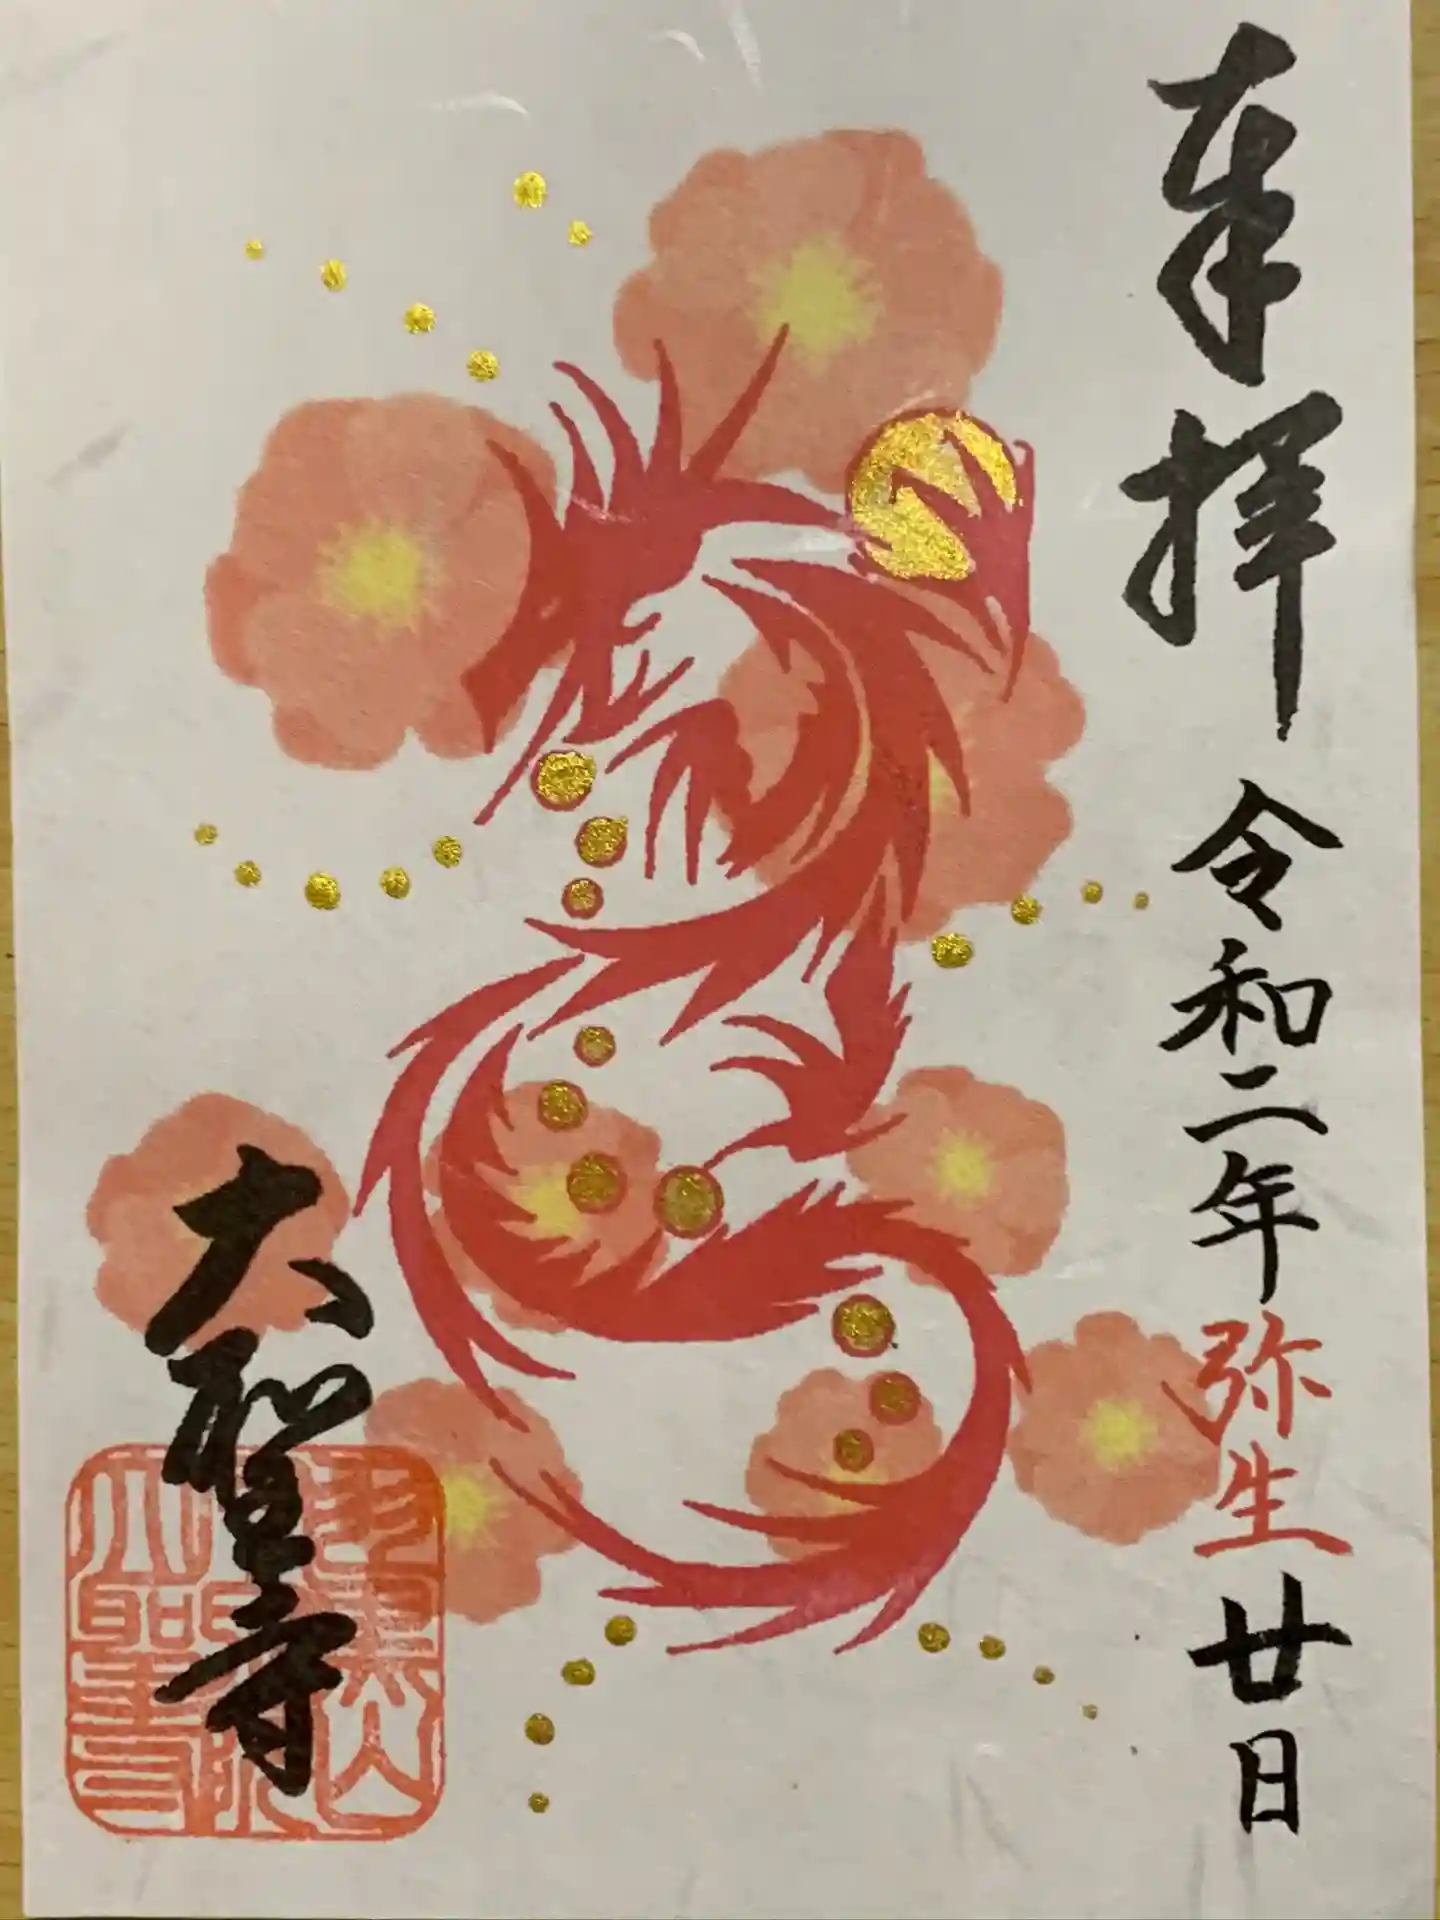 奉拝
令和二年弥生廿日
大聖寺